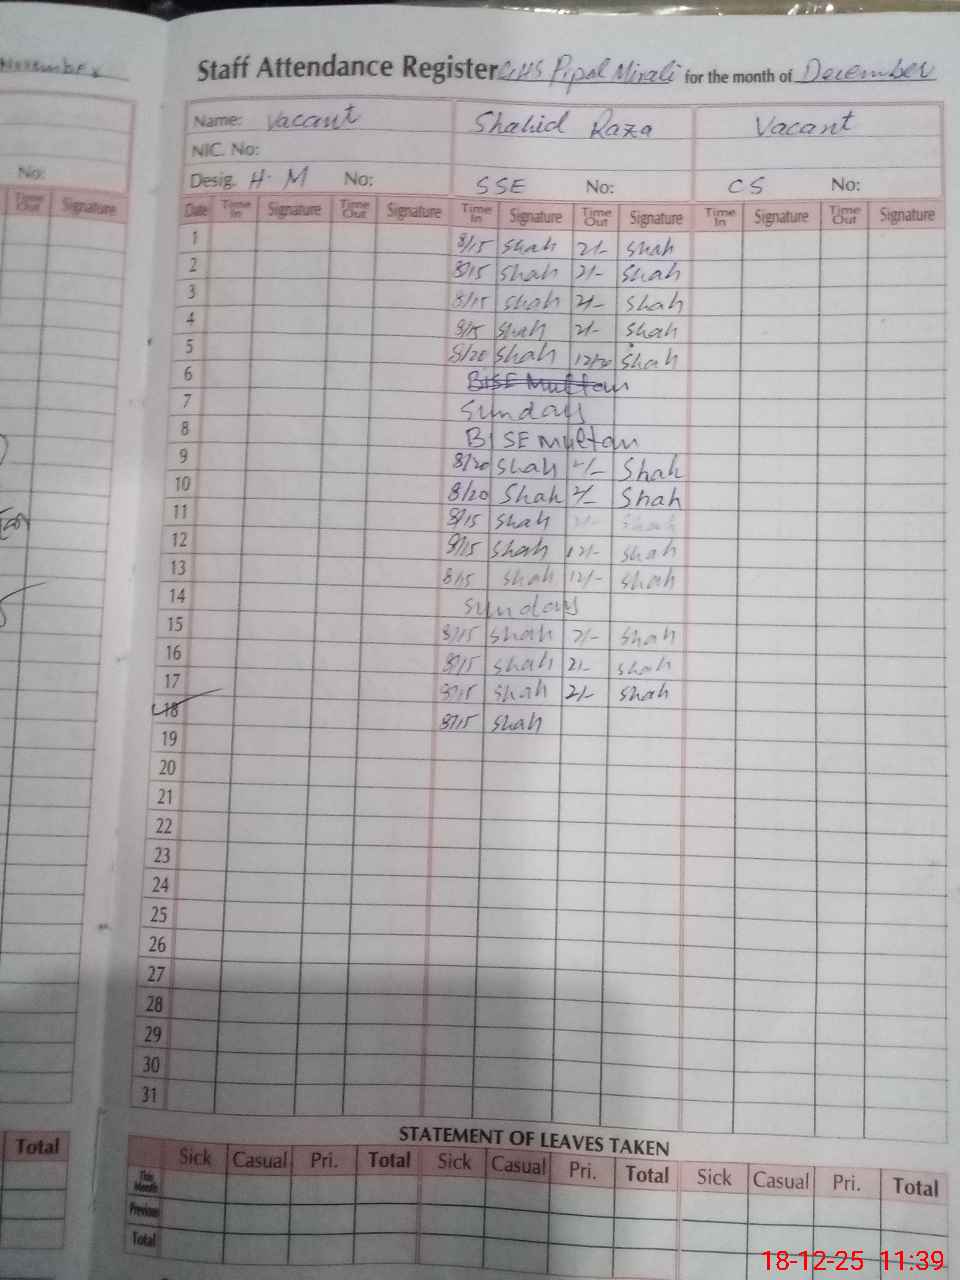 November
Staff Attendance Register GHS Pipal Mirali for the month of December
Name: Vacant Shahid Raza Vacant
NIC. No:
No:
Desig. H.M No: SSE No: CS No:
Time Out Signature
Date Time In Signature Time Out Signature Time In Signature Time Out Signature Time In Signature Time Out Signature
1 8/15 Shah 2/- Shah
2 8/15 Shah 2/- Shah
3 8/15 Shah 2/- Shah
4 8/15 Shah 2/- Shah
5 8/20 Shah 12/20 Shah
6 BISE Multan
7 Sunday
8 BISE multan
9 8/20 Shah 2/- Shah
10 8/20 Shah 2/- Shah
11 8/15 Shah 2/- Shah
12 8/15 Shah 12/- Shah
13 8/15 Shah 12/- Shah
14 Sunday
15 8/15 Shah 2/- Shah
16 8/15 Shah 2/- Shah
17 8/15 Shah 2/- Shah
18 8/15 Shah
19
20
21
22
23
24
25
26
27
28
29
30
31
STATEMENT OF LEAVES TAKEN
Total
Sick Casual Pri. Total Sick Casual Pri. Total Sick Casual Pri. Total
This Month
Previous
Total
18-12-25 11:39